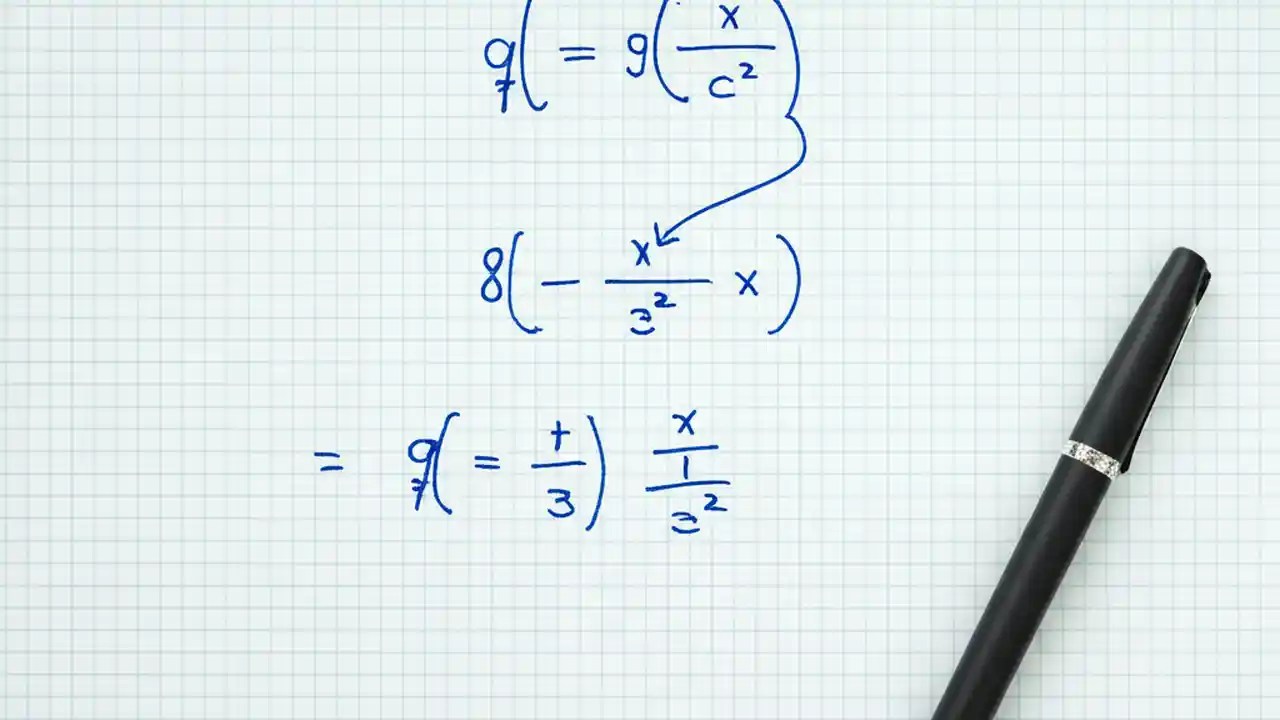 q( = g(x/c²)
8(- x/z² x)
= q( = +/3) x/1/z²